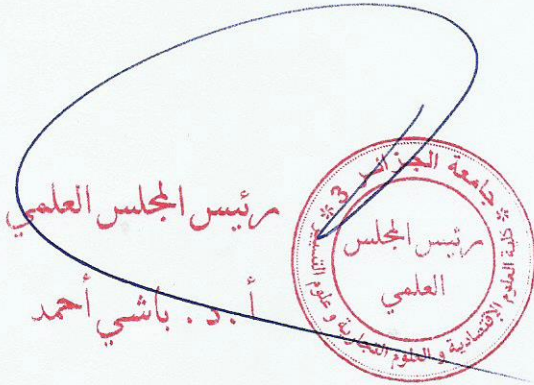 رئيس المجلس العلمي
أ. د. باشي أحمد
* جامعة الجزائر 3 *
كلية العلوم الإقتصادية و العلوم التجارية و علوم
رئيس المجلس
العلمي